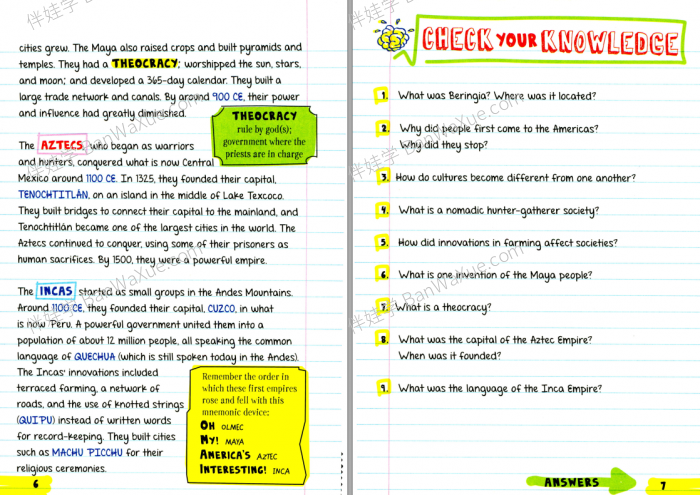 cities grew. The Maya also raised crops and built pyramids and
temples. They had a THEOCRACY; worshipped the sun, stars,
and moon; and developed a 365-day calendar. They built a
large trade network and canals. By around 900 CE, their power
and influence had greatly diminished.
THEOCRACY
rule by god(s);
government where the
priests are in charge
The AZTECS, who began as warriors
and hunters, conquered what is now Central
Mexico around 1100 CE. In 1325, they founded their capital,
TENOCHTITLÁN, on an island in the middle of Lake Texcoco.
They built bridges to connect their capital to the mainland, and
Tenochtitlán became one of the largest cities in the world. The
Aztecs continued to conquer, using some of their prisoners as
human sacrifices. By 1500, they were a powerful empire.
The INCAS started as small groups in the Andes Mountains.
Around 1100 CE, they founded their capital, CUZCO, in what
is now Peru. A powerful government united them into a
population of about 12 million people, all speaking the common
language of QUECHUA (which is still spoken today in the Andes).
The Incas' innovations included
terraced farming, a network of
roads, and the use of knotted strings
(QUIPU) instead of written words
for record-keeping. They built cities
such as MACHU PICCHU for their
religious ceremonies.
Remember the order in
which these first empires
rose and fell with this
mnemonic device:
OH OLMEC
MY! MAYA
AMERICA'S AZTEC
INTERESTING! INCA
6
CHECK YOUR KNOWLEDGE
1. What was Beringia? Where was it located?
2. Why did people first come to the Americas?
Why did they stop?
3. How do cultures become different from one another?
4. What is a nomadic hunter-gatherer society?
5. How did innovations in farming affect societies?
6. What is one invention of the Maya people?
7. What is a theocracy?
8. What was the capital of the Aztec Empire?
When was it founded?
9. What was the language of the Inca Empire?
ANSWERS
7
伴娃学 BanWaXue.com
伴娃学 BanWaXue.com
伴娃学 BanWaXue.com
伴娃学 BanWaXue.com